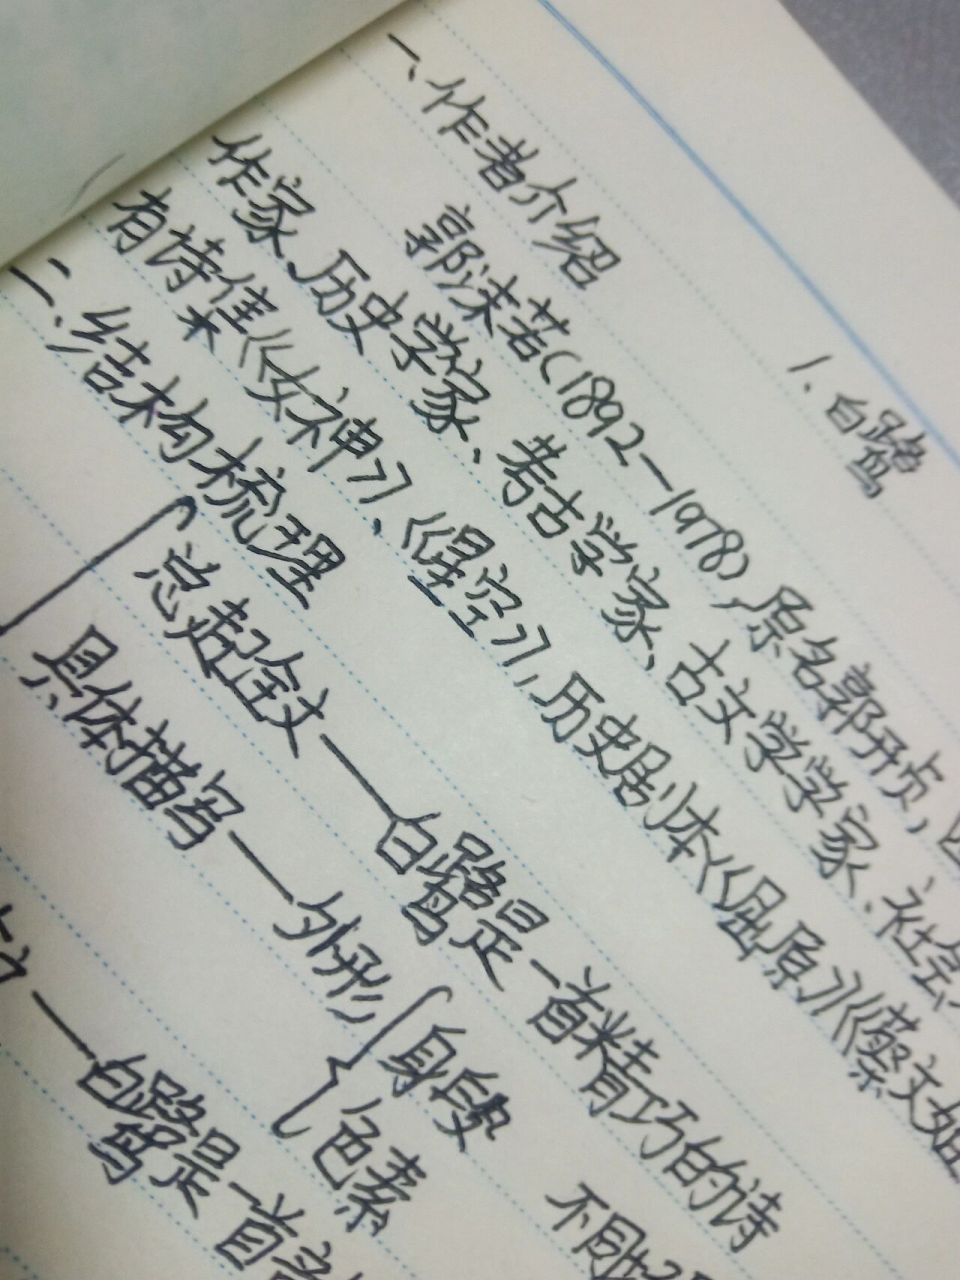 1.白鹭
一、作者介绍
郭沫若(1892—1978),原名郭开贞,
作家、历史学家、考古学家、古文学学家、社会
有诗集《女神》、《星空》,历史剧本《屈原》《蔡文姬
二、结构梳理
总起全文——白鹭是一首精巧的诗
具体描写——外形
身段
色素
不同
——白鹭是一首